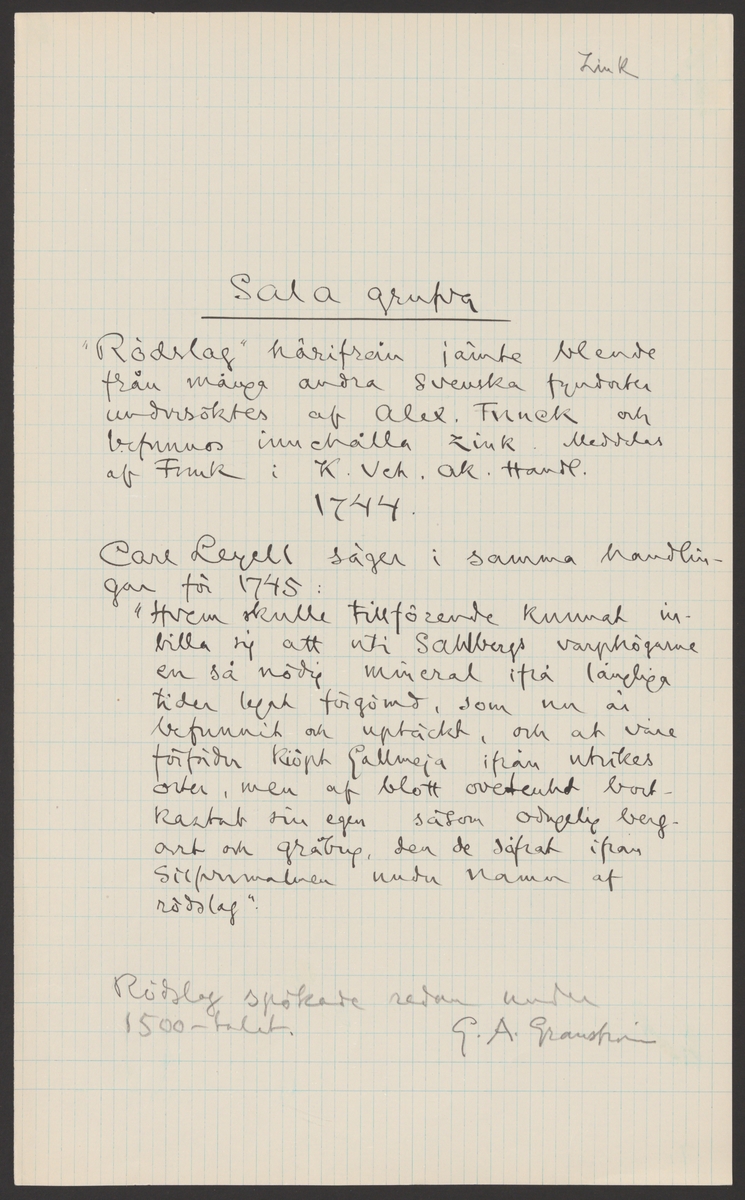 Zink
Sala grufva
"Rödslag" härifrån jämte blende
från många andra Svenska fyndorter
undersöktes af Alex. Funck och
befunnos innehålla Zink. Meddelas
af Funk i K. Vet. Ak. Handl.
1744.
Carl Leyell säger i samma handlin-
gar för 1745:
"Hvem skulle tillförende kunnat in-
billa sig att uti Sahlbergs varphögarne
en så nödig mineral ifrå långliga
tider legat förgömd, som nu är
befunnit och uptäckt, och at våre
förfäder kiöpt Gallmeja ifrån utrikes
orter, men af blott ovetenhet bort-
kastat sin egen såsom oduglig berg-
art och gråbeg, den de söfrat ifrån
Silfvermalmen under namn af
rödslag".
Rödslag spökade redan under
1500-talet.
G. A. Granström